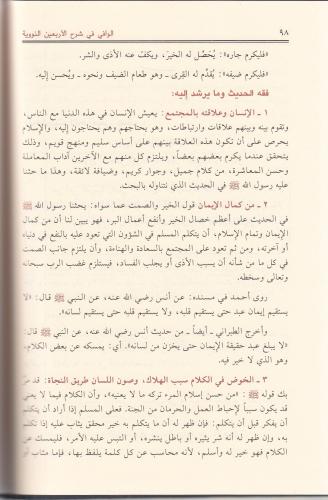 ٩٨ الوافي في شرح الأربعين النووية
«فليكرم جاره»: يُحَصِّل له الخير، ويكف عنه الأذى والشر.
«فليكرم ضيفه»: يُقدِّم له القِرى ـ وهو طعام الضيف ونحوه ـ ويُحسن إليه.
فقه الحديث وما يرشد إليه:
١ ـ الإنسان وعلاقته بالمجتمع: يعيش الإنسان في هذه الدنيا مع الناس،
وتقوم بينه وبينهم علاقات وارتباطات، وهو يحتاجهم وهم يحتاجون إليه، والإسلام
يحرص على أن تكون هذه العلاقة بينهم على أساس سليم ومنهج قويم، وذلك
يتحقق عندما يكرم بعضهم بعضاً، ويلتزم كل منهم مع الآخرين آداب المعاملة
وحسن المعاشرة، من كلام جميل، وجوار كريم، وضيافة لائقة، وهذا ما حثنا
عليه رسول الله ﷺ في الحديث الذي نتناوله بالبحث.
٢ ـ من كمال الإيمان قول الخير والصمت عما سواه: يحثنا رسول الله ﷺ
في الحديث على أعظم خصال الخير وأنفع أعمال البر، فهو يبين لنا أن من كمال
الإيمان وتمام الإسلام، أن يتكلم المسلم في الشؤون التي تعود عليه بالنفع في دنياه
أو آخرته، ومن ثم تعود على المجتمع بالسعادة والهناءة، وأن يلتزم جانب الصمت
في كل ما من شأنه أن يسبب الأذى أو يجلب الفساد، فيستلزم غضب الرب سبحانه
وتعالى وسخطه.
روى أحمد في مسنده: عن أنس رضي الله عنه، عن النبي ﷺ قال: «لا
يستقيم إيمان عبد حتى يستقيم قلبه، ولا يستقيم قلبه حتى يستقيم لسانه».
وأخرج الطبراني ـ أيضاً ـ من حديث أنس رضي الله عنه، عن النبي ﷺ قال:
«لا يبلغ عبد حقيقة الإيمان حتى يخزن من لسانه». أي: يمسكه عن بعض الكلام،
وهو الذي لا خير فيه.
٣ ـ الخوض في الكلام سبب الهلاك، وصون اللسان طريق النجاة: قد
بك قوله ﷺ: «من حسن إسلام المرء تركه ما لا يعنيه»، وأن الكلام فيما لا يعني
قد يكون سبباً لإحباط العمل والحرمان من الجنة. فعلى المسلم إذا أراد أن يتكلم
أن يفكر قبل أن يتكلم: فإن ظهر له أن ما يتكلم به خير محقق يثاب عليه تكلم
به، وإن ظهر له أنه شر يثيره أو باطل ينشره، أو التبس عليه الأمر، فليمسك عن
الكلام فهو خير له وأسلم، لأنه محاسب عن كل كلمة يلفظ بها، فإما مثاب